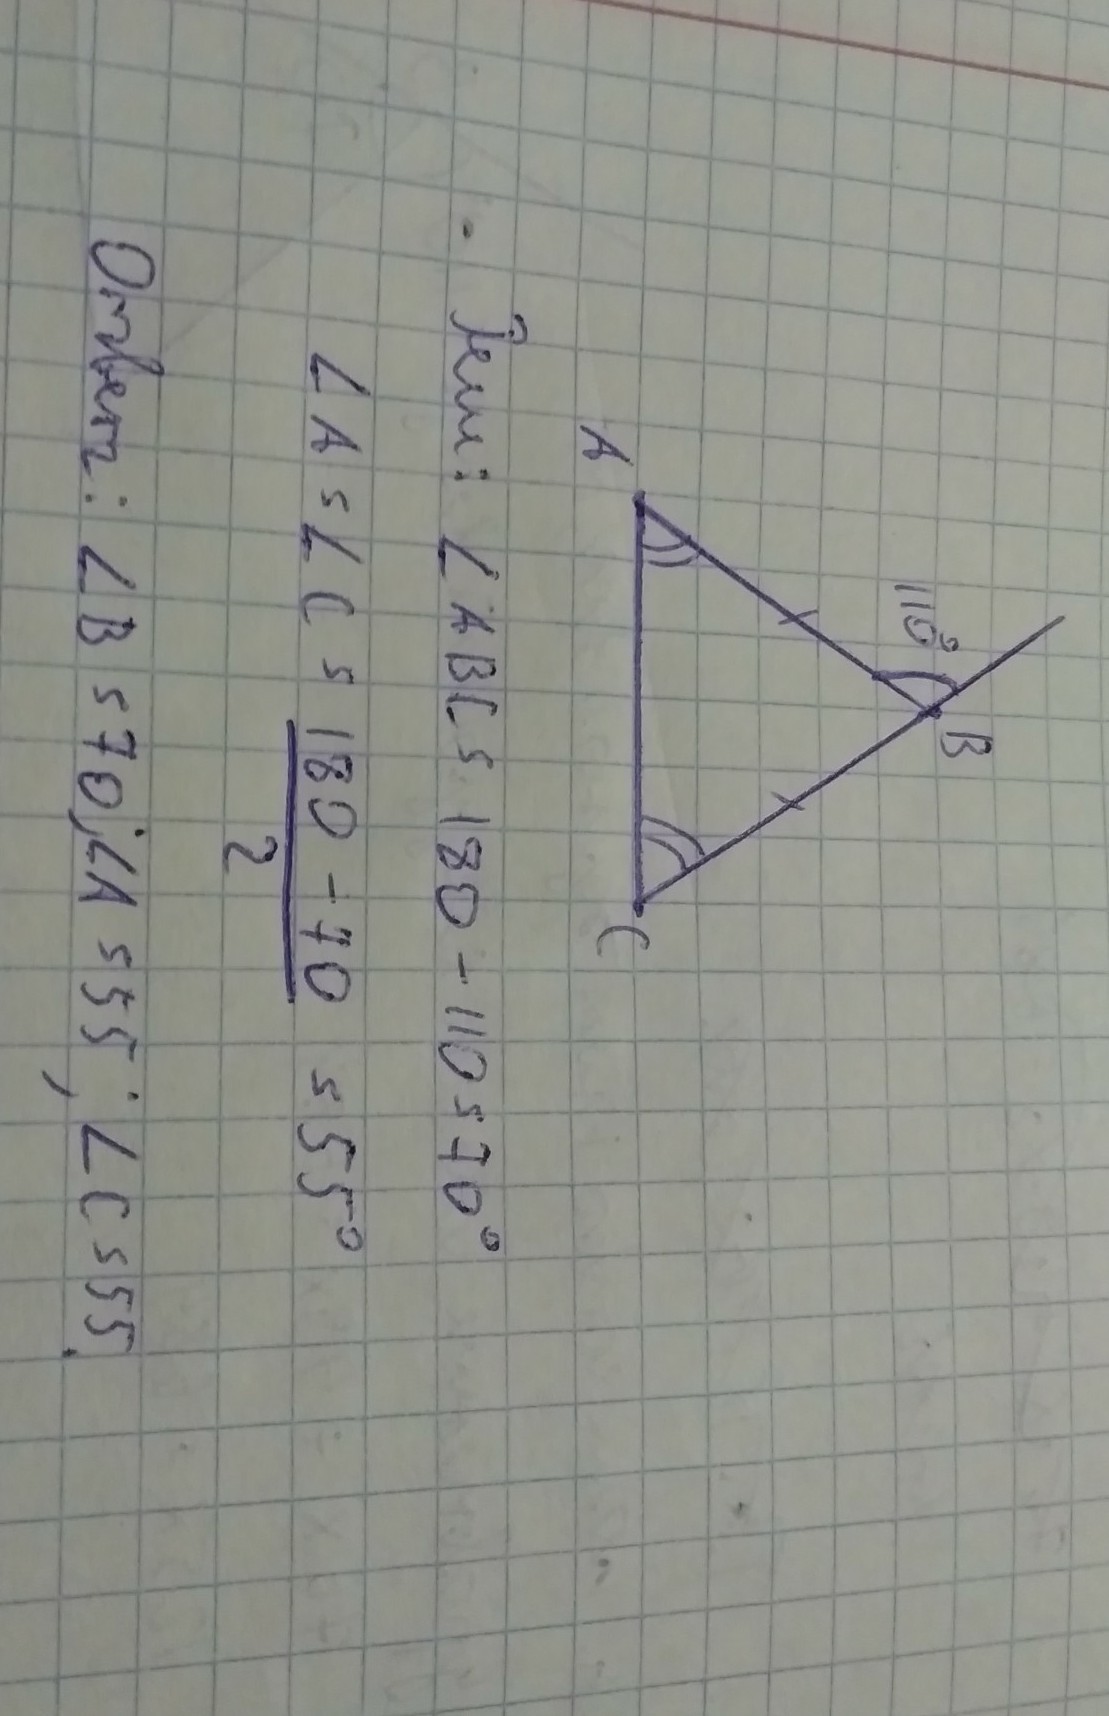 B
110°
A
C
Реш: ∠ABC = 180 - 110 = 70°
∠A = ∠C = 180 - 70 = 55°
2
Ответ: ∠B = 70; ∠A = 55; ∠C = 55.